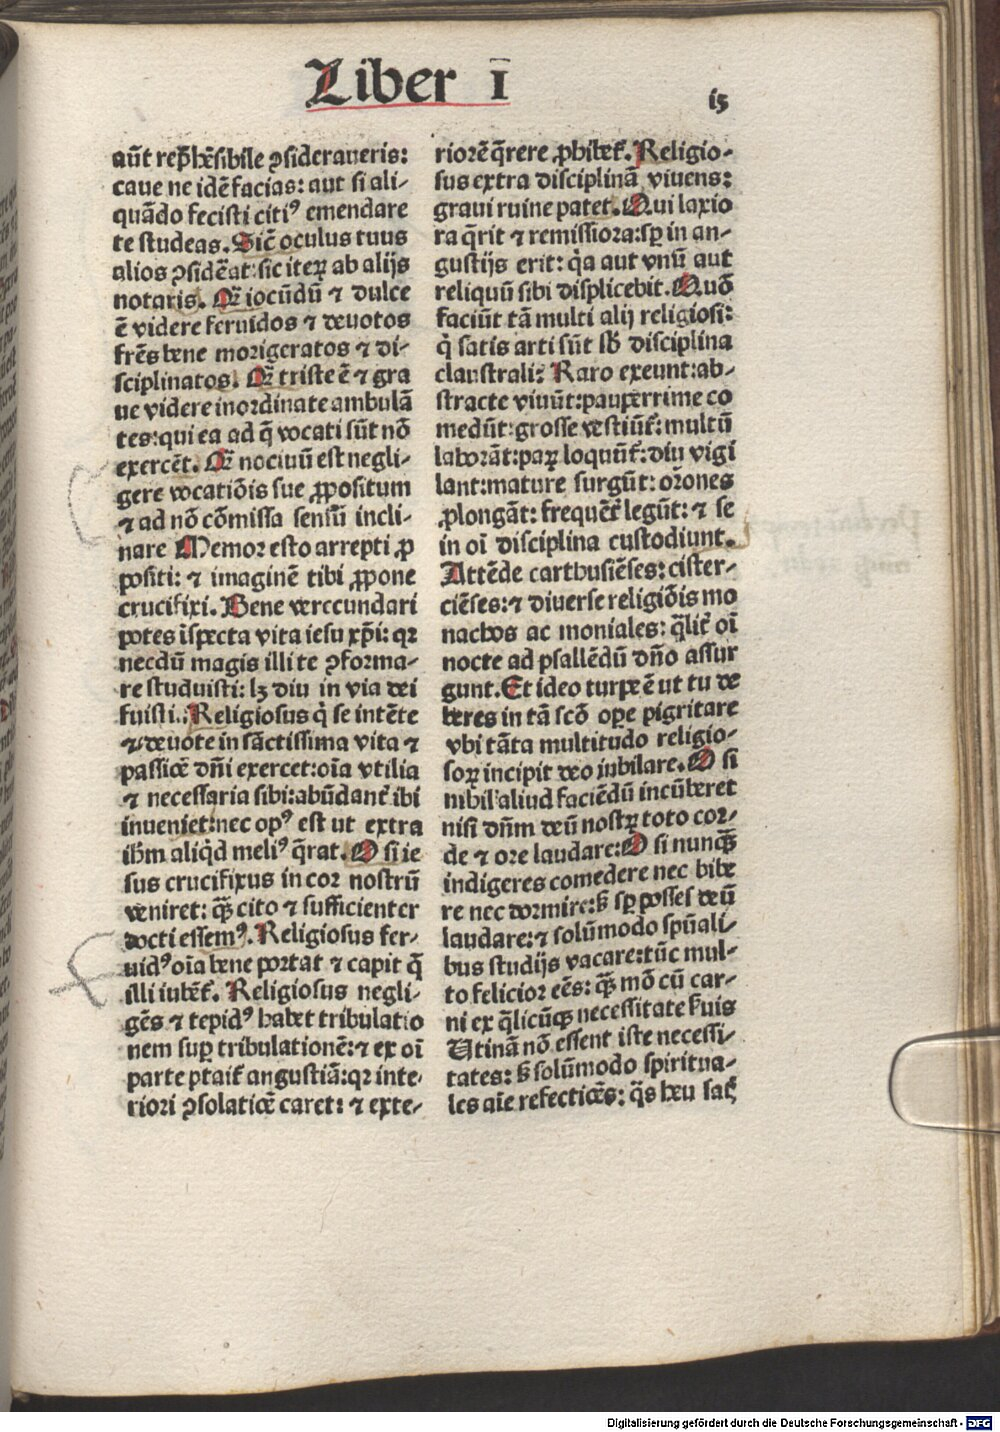 Liber I
i5
aūt rep̄hēsibile ꝯsideraueris:
caue ne idē facias: aut si ali-
quādo fecisti citiꝰ emendare
te studeas. Sicē oculus tuus
alios ꝯsidēat: sic iteꝝ ab alijs
notaris. Qͫ iocūdū ⁊ dulce
ē videre feruidos ⁊ deuotos
frēs bene morigeratos ⁊ di-
sciplinatos. Qͫ triste ē ⁊ gra
ue videre inordinate ambulā
tes: qui ea ad q̄ vocati sūt nō
exercēt. Qͫ nociuū est negli-
gere vocatiōis sue ꝓpositum
⁊ ad nō cōmissa sensū incli-
nare Memor esto arrepti ꝓ
positi: ⁊ imaginē tibi ꝓpone
crucifixi. Bene verecundari
potes īspecta vita iesu xp̄i: qꝛ
necdū magis illi te ꝯforma-
re studuisti: lꝫ diu in via dei
fuisti. Religiosus q̇ se intēte
⁊ deuote in sāctissima vita ⁊
passiōe dn̄i exercet: oīa vtilia
⁊ necessaria sibi: abūdant̄ ibi
inueniet: nec opꝰ est ut extra
ihm̄ aliq̇d meliꝰ q̄rat. O si ie
sus crucifixus in cor nostrū
veniret: qͫꝫ cito ⁊ sufficienter
docti essemꝰ. Religiosus fer-
uidꝰ oīa bene portat ⁊ capit q̄
illi iubēt̄. Religiosus negli-
gēs ⁊ tepidꝰ habet tribulatio
nem suꝑ tribulationē: ⁊ ex oī
parte ptait̄ angustiā: qꝛ inte-
riori ꝯsolatiōe caret: ⁊ exte-
riorē q̄rere ꝓhibet̄. Religio-
sus extra disciplinā viuens:
graui ruine patet. Qui laxio
ra q̄rit ⁊ remissiora: sꝑ in an-
gustijs erit: q̇a aut vnū aut
reliquū sibi displicebit. Quō
faciūt tā multi alij religiosi:
q̇ satis arti sūt sb̄ disciplina
claustrali? Raro exeunt: ab-
stracte viuūt: pauperrime co
medūt: grosse vestiūt̄: multū
laborāt: paꝝ loquūt̄: diu vigi
lant: mature surgūt: or̄ones
ꝓlongāt: frequēt̄ legūt: ⁊ se
in oī disciplina custodiunt.
Attēde carthusiēses: cister-
ciēses: ⁊ diuerse religiōis mo
nachos ac moniales: q̄lit̄ oī
nocte ad psallēdū dn̄o assur
gunt. Et ideo turpe ē ut tu de
beres in tā scō ope pigritare
vbi tāta multitudo religio-
soꝝ incipit deo iubilare. O si
nihil aliud faciēdū incūberet
nisi dn̄m deū nostꝝ toto cor-
de ⁊ ore laudare: O si nunqͫꝫ
indigeres comedere nec bibe
re nec dormire: ß sꝑ posses deū
laudare: ⁊ solūmodo spūali-
bus studijs vacare: tūc mul-
to felicior eēs: qͫꝫ mō cū car-
ni ex q̄licūqꝫ necessitate ẜuis
Vtinā nō essent iste necessi-
tates: ß solūmodo spiritua-
les aīe refectiōes: q̄s heu sat̄
Digitalisierung gefördert durch die Deutsche Forschungsgemeinschaft - DFG